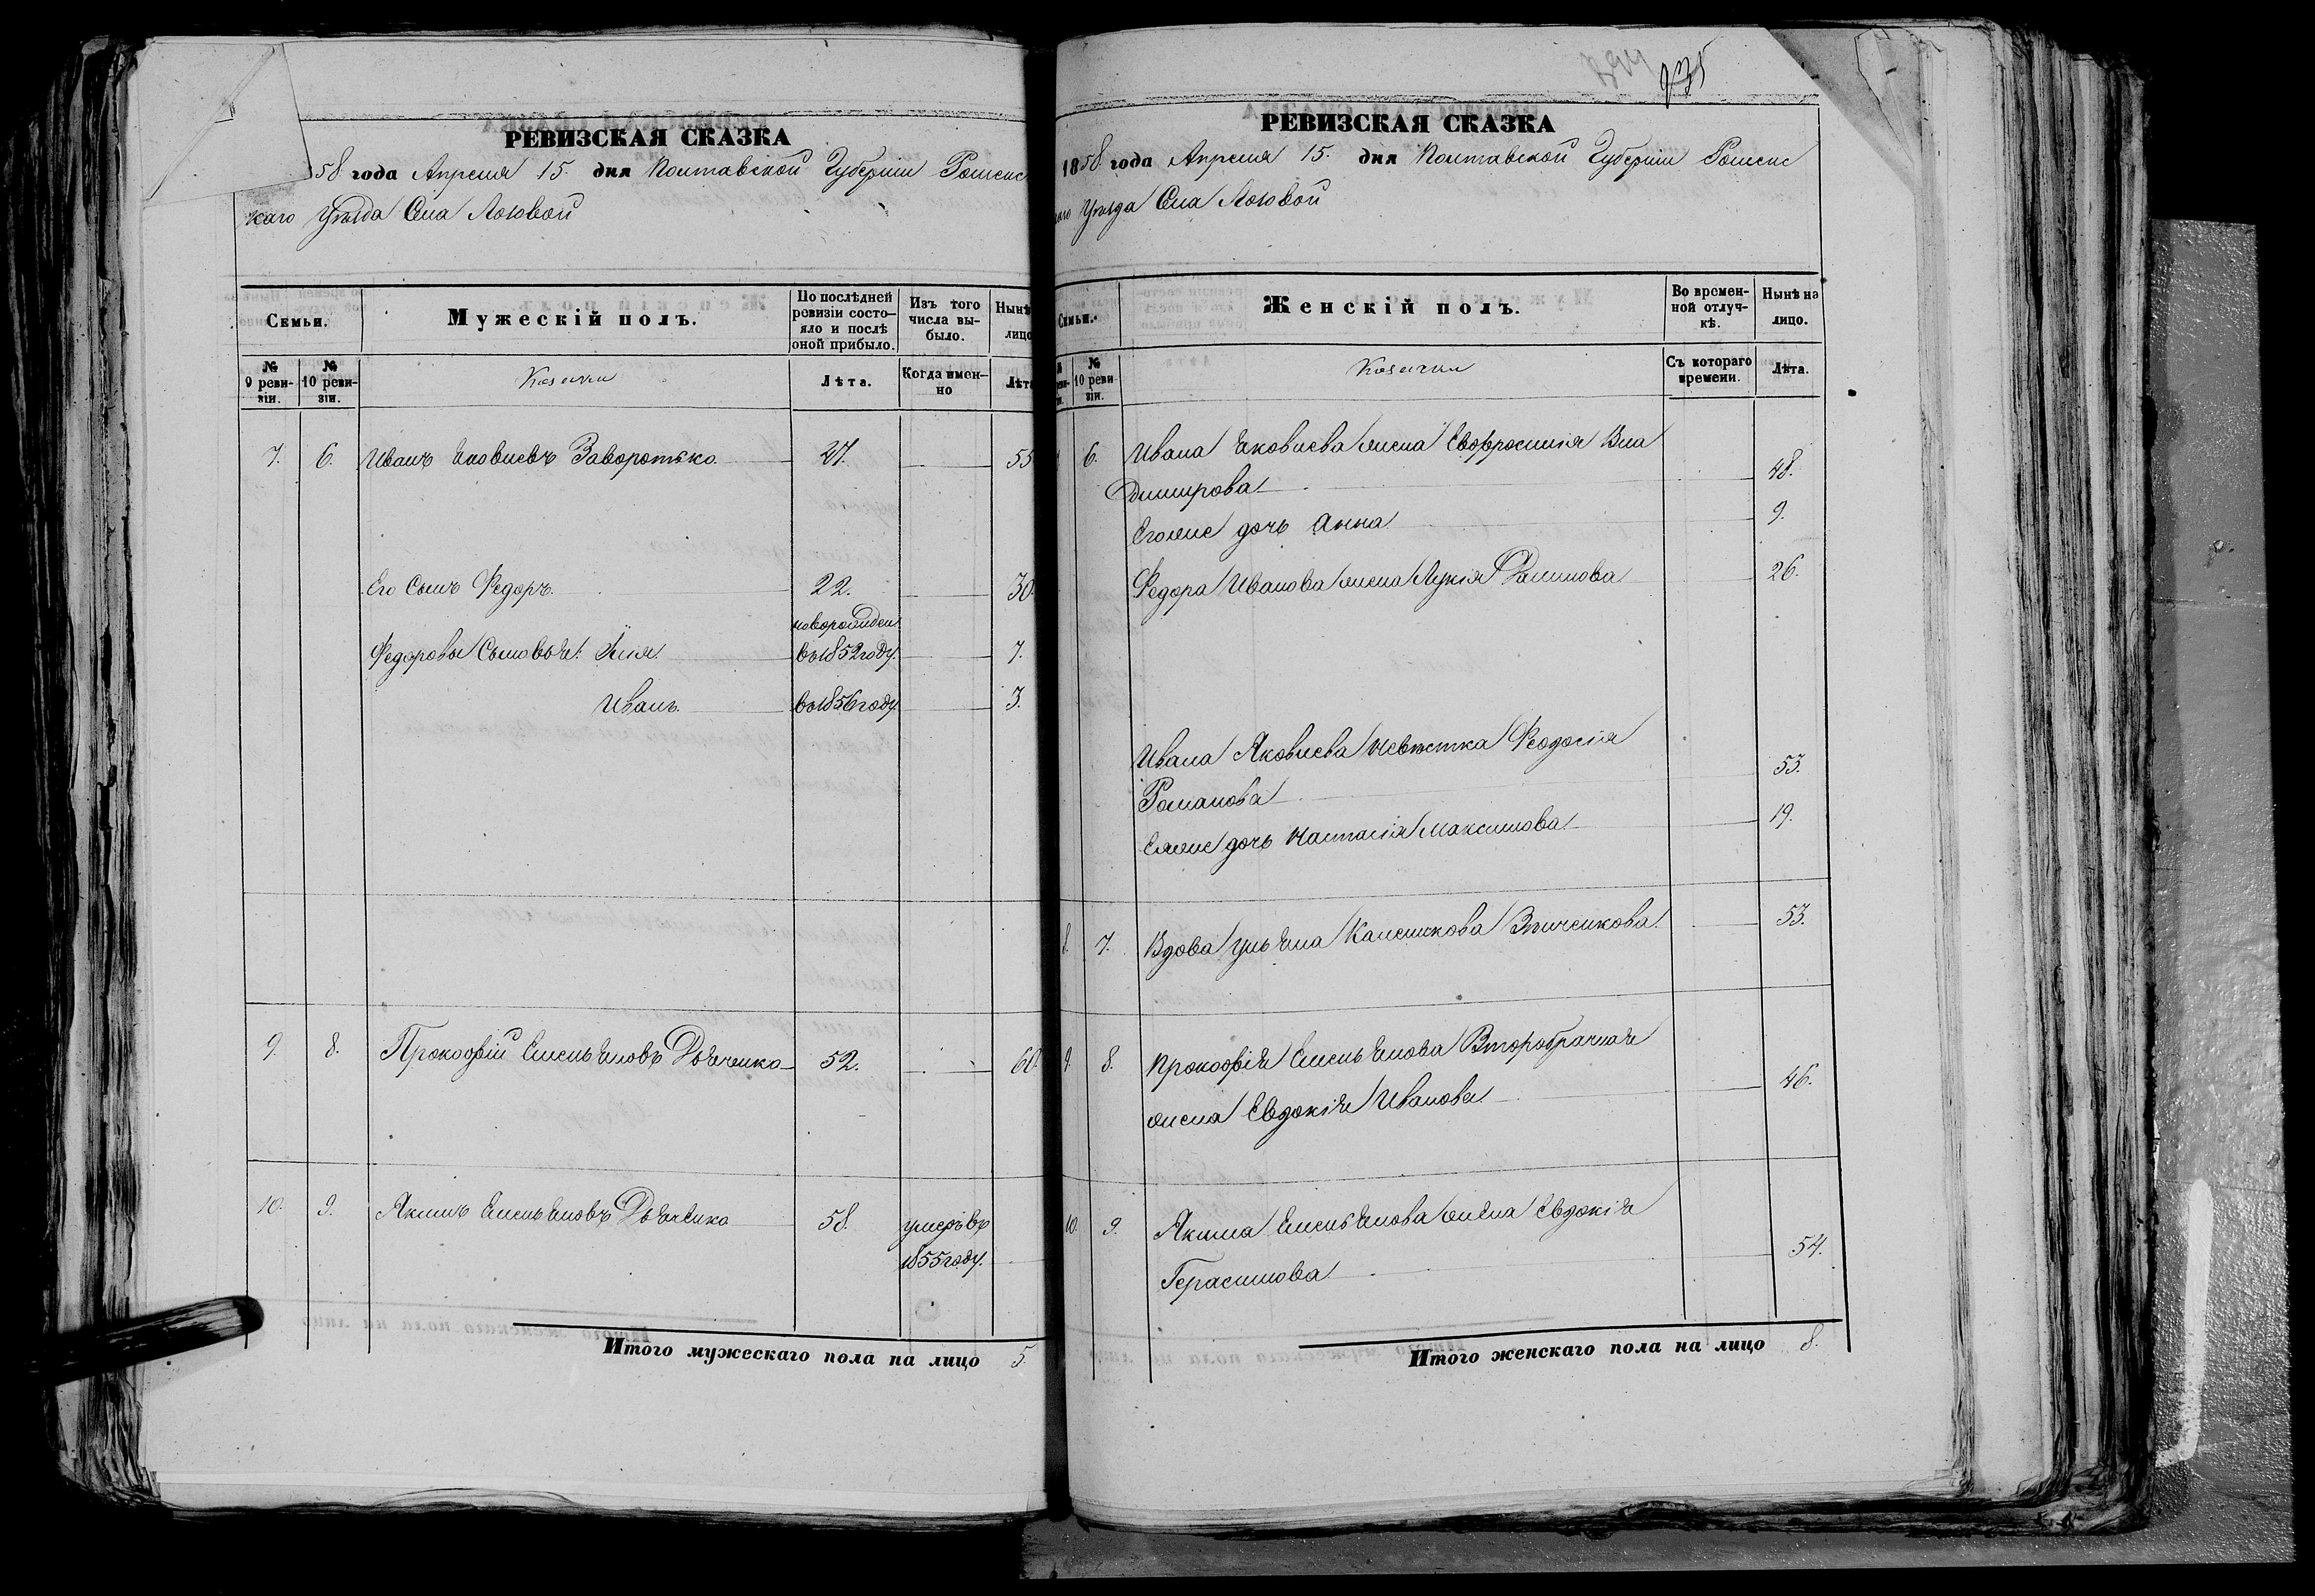 РЕВИЗСКАЯ СКАЗКА
58 года Апреля 15. дня Полтавской Губерніи Роменс
каго Уѣзда Села Локовой
Семьи.
Мужескій полъ.
По послѣдней ревизіи состояло и послѣ оной прибыло.
Изъ того числа выбыло.
Нынѣ
лицо
№ 9 ревизіи.
№ 10 ревизіи.
Козаки
Лѣта.
Когда именно
Лѣта
7. 6. Иванъ Яковлевъ Заворотько 27. 55
Его Сынъ Федоръ. 22. 30.
новорожден.
Федоровы Сыновья: Илія въ 1852 году. 7.
Иванъ. въ 1856 году. 3.
9. 8. Прокофій Емельяновъ Дьяченко 52. 60.
10. 9. Якимъ Емельяновъ Дьяченко 58. умеръ въ
1855 году.
Итого мужескаго пола на лицо 5.
735
РЕВИЗСКАЯ СКАЗКА
1858 года Апреля 15. дня Полтавской Губерніи Роменс
каго Уѣзда Села Локовой
Семьи.
Женскій полъ.
Во временной отлучкѣ.
Нынѣ на лицо.
№ 10 ревизіи.
Козачки
Съ котораго времени.
Лѣта.
6. Ивана Яковлева жена Евфросинія Вла
димирова 48.
Егоже дочь Анна 9.
Федора Иванова жена Лукія Данилова 26.
Ивана Яковлева невѣстка Феодосія
Романова 53.
Еяже дочь Настасія Максимова 19.
8. 7. Вдова Ульяна Каленикова 53.
9. 8. Прокофія Емельянова Второбрачная
жена Евдокія Иванова 46.
10. 9. Якима Емельянова жена Евдокія
Герасимова 54.
Итого женскаго пола на лицо 8.